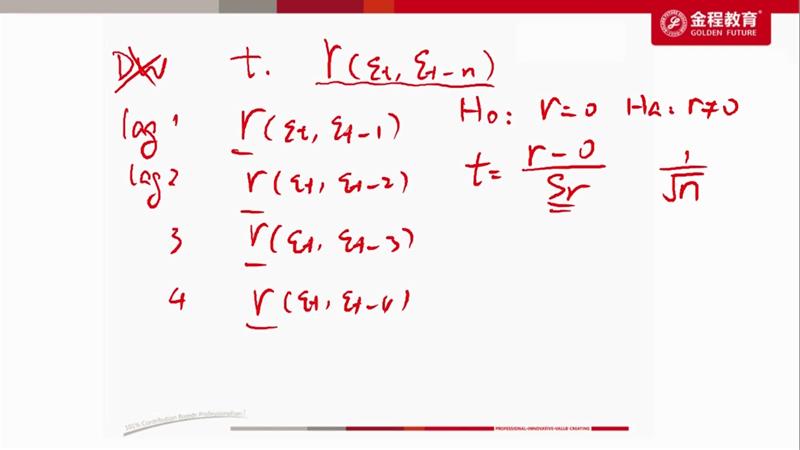 金程教育
GOLDEN FUTURE
DW t. r(εt, εt-n)
H0: r=0 Ha: r≠0
lag 1 r(εt, εt-1)
lag 2 r(εt, εt-2)
t= r-0 / Sr 1/√n
3 r(εt, εt-3)
4 r(εt, εt-4)
101% Contribution Breeds Professionalism
PROFESSIONAL·INNOVATIVE·VALUE CREATING